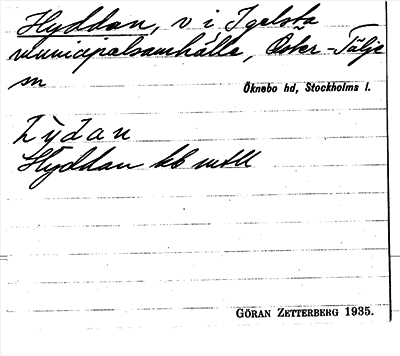 Hyddan, v i Igelsta
municipalsamhälle, Öster-Tälje
sn Öknebo hd, Stockholms l.
Hyddan kb mtll
GÖRAN ZETTERBERG 1935.